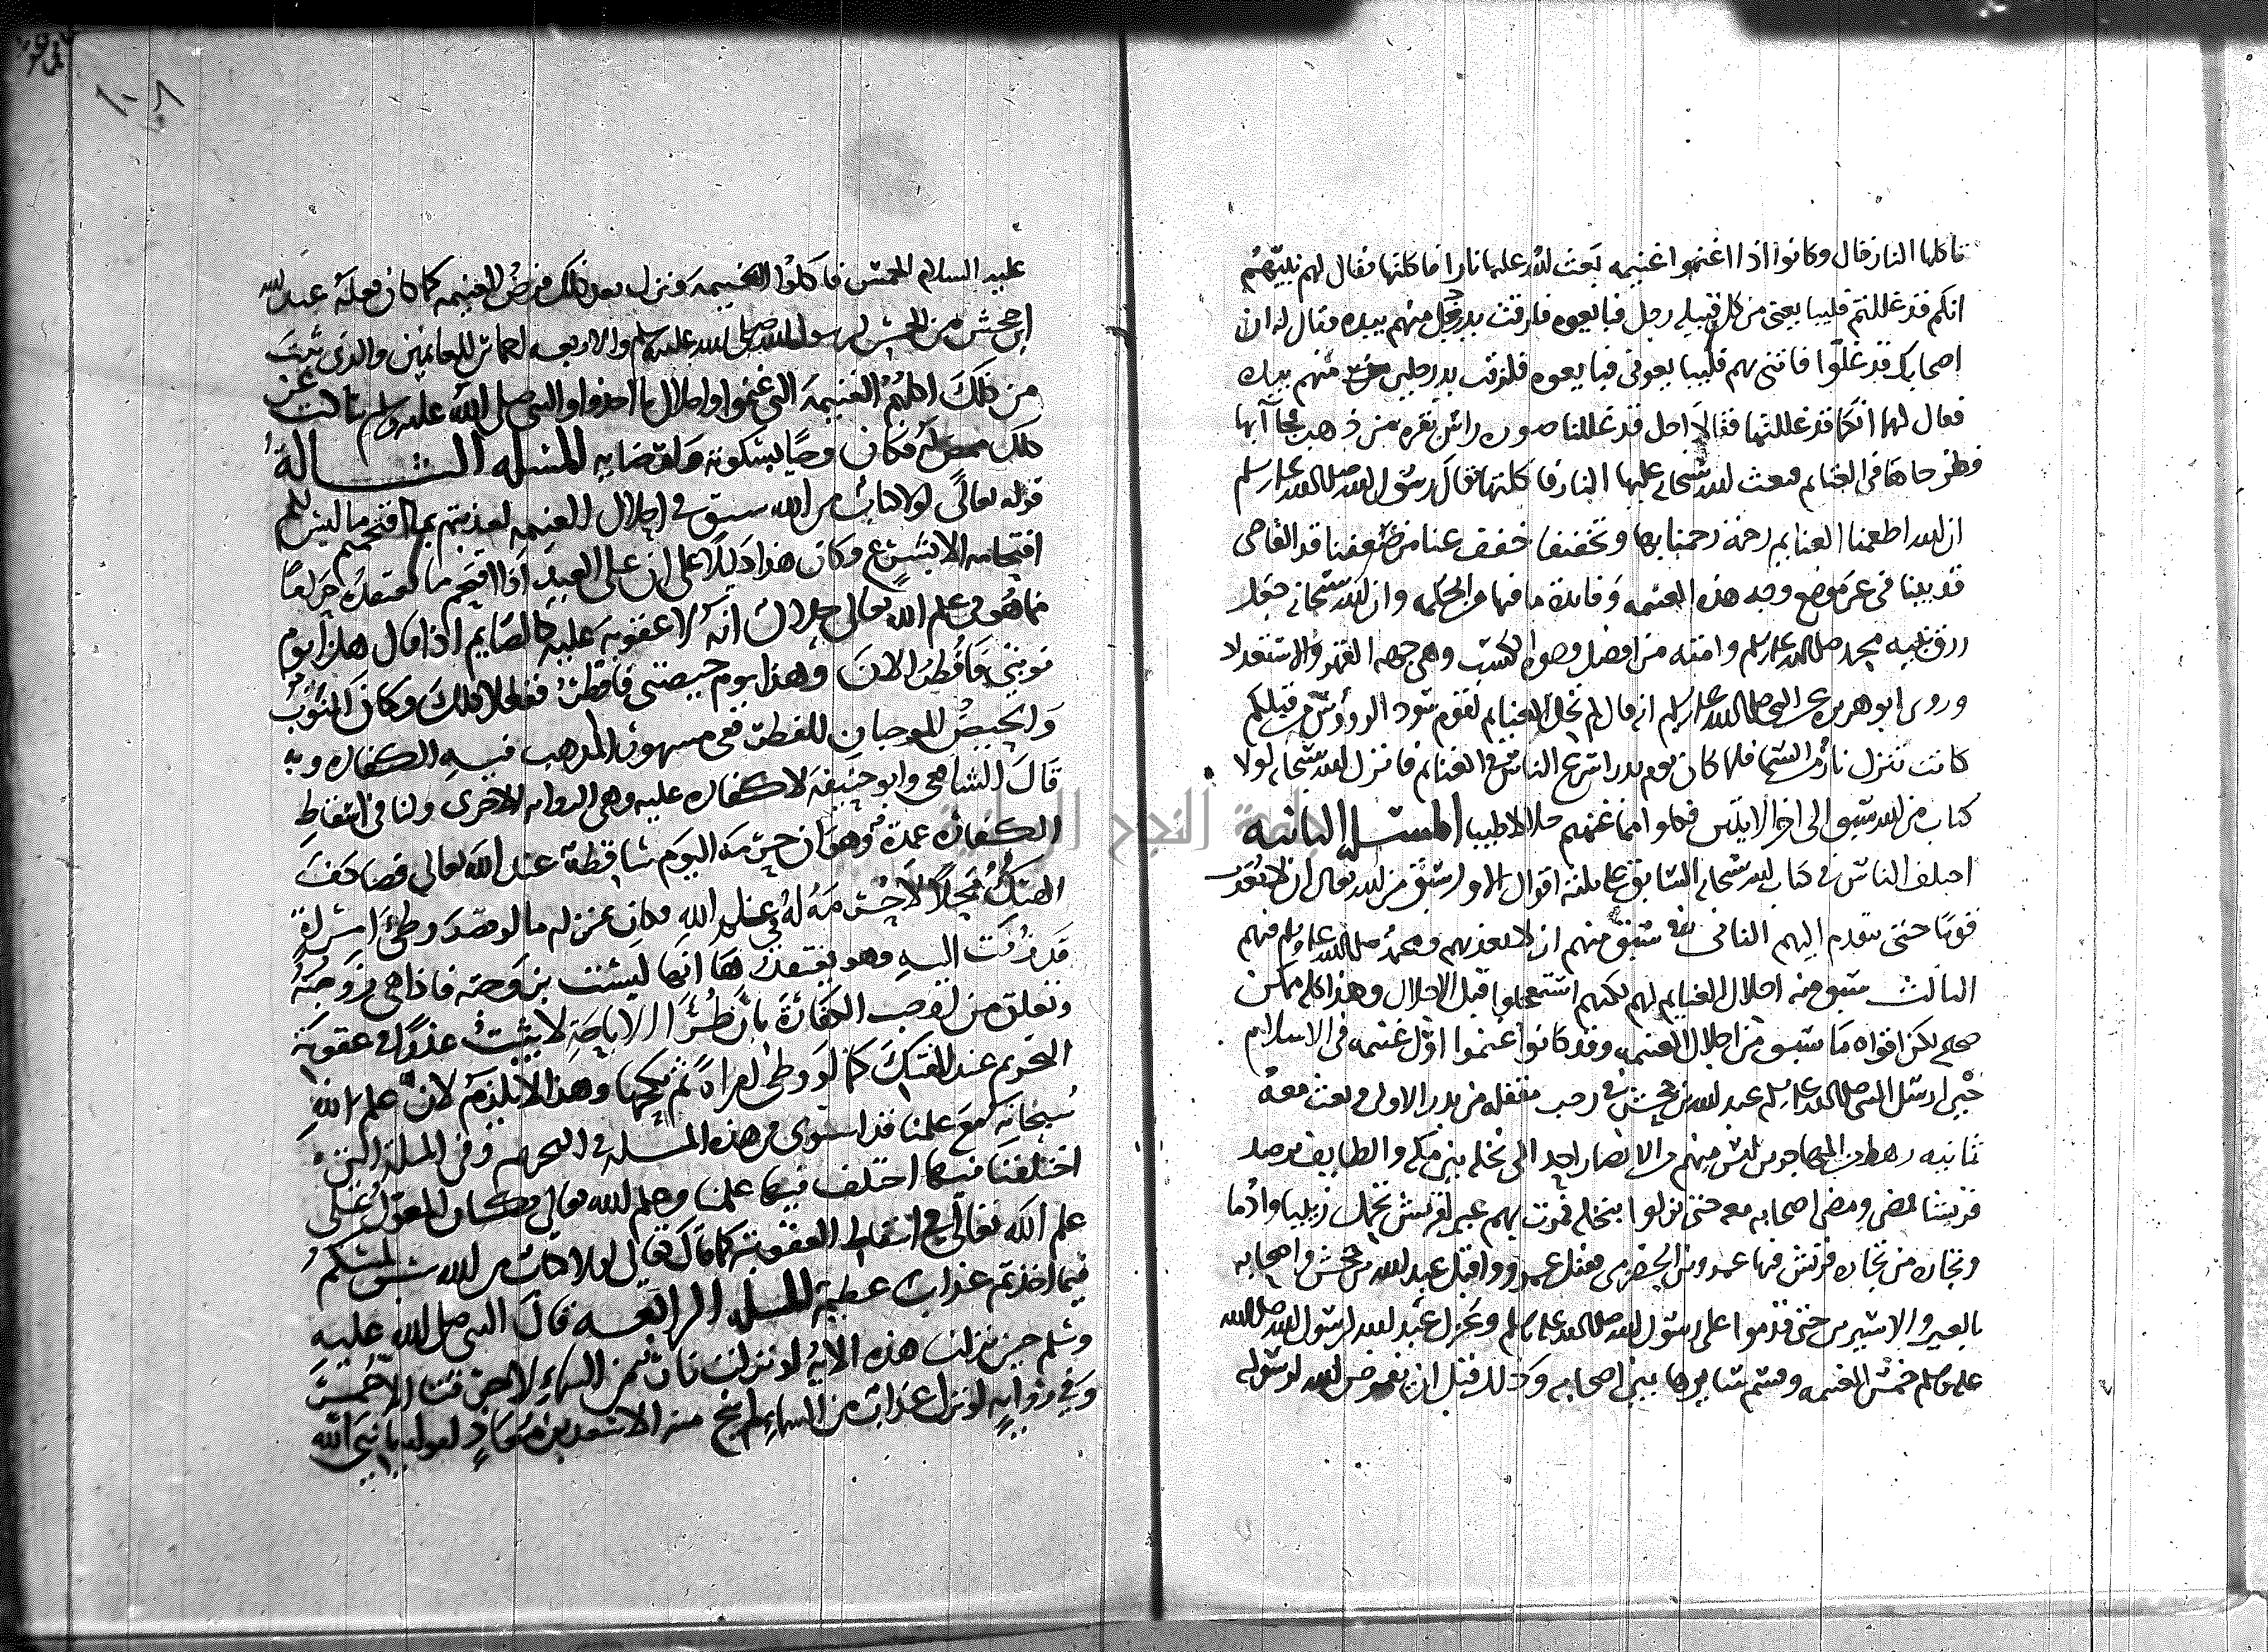 تاكلها النار قال وكانوا اذا اغنموا غنيمه بعث الله عليها نارا فاكلتها فقال لهم نبيهم
انكم قد غللتم فليبا يعنى من كل قبيله رجل فبايعوه فلزقت يد رجل منهم بيده فقال له ان
اصحابك قد غلوا فاتنى بهم فليبايعونى فبايعوه فلزقت يد رجلين منهم بيده
فقال لهما انكما قد غللتما فقالا اجل قد غللنا صوره راس بقره من ذهب فجاآ بها
فطرحاها فى الغنايم فبعث الله سبحانه عليها النار فاكلتها فقال رسول الله صلى الله عليه وسلم
ان الله اطعمنا الغنايم رحمة رحمنا بها وتخفيفا خفف عنا من ضعفنا قد القاضى
قد بينا فى غير موضع وجه هذه الغنيمه وفايدة ما فيها من الحكمه وان الله سبحانه جعل
رزق نبيه محمد صلى الله عليه وسلم وامته من افضل وجوه الكسب وهى جهه القهر والاستعلا
وروى ابو هريره عن النبى صلى الله عليه وسلم انه قال لم تحل الغنايم لقوم سود الرووس من قبلكم
كانت تنزل نار من السما فلما كان يوم بدر اسرع الناس فى الغنايم فانزل الله سبحانه لولا
كتاب من الله سبق الى اخر الايتين فكلوا مما غنمتم حلالا طيبا المسله الثانيه
اختلف الناس فى كتاب الله سبحانه السابق على ثلثة اقوال الاول سبق من الله تعالى ان لا يعذب
قوما حتى يتقدم اليهم الثانى سبق منهم ان لا يعذبهم ومحمد صلى الله عليه وسلم فيهم
الثالث سبق منه احلال الغنايم لهم لكنهم استعجلوا قبل الاحلال وهذا كله ممكن
صحيح لكن اقواه ما سبق من احلال الغنيمه وقد كانوا غنموا اول غنيمه فى الاسلام
حين ارسل النبى صلى الله عليه وسلم عبد الله بن جحش فى رجب مقفله من بدر الاولى وبعث معه
ثمانيه رهط من المهاجرين ليس فيهم من الانصار احد الى نخله بين مكه والطايف فرصد
قريشا فمضى ومضى اصحابه معه حتى نزلوا بنخله فمرت بهم عير لقريش تحمل زبيبا وادما
وتجاره من تجاره قريش فيها عمرو بن الحضرمى فقتل عمرو واقبل عبد الله بن جحش واصحابه
بالعير والاسيرين حتى قدموا على رسول الله صلى الله عليه وسلم وعزل عبد الله لرسول الله صلى الله
عليه وسلم خمس الغنيمه وقسم سايرها بين اصحابه وذلك قبل ان يفرض الله لرسوله
عليه السلام الخمس فاكلوا الغنيمه ونزل بعد ذلك فرض الغنيمه كما كان فعله عبد الله
ابن جحش من الخمس لرسول الله صلى الله عليه وسلم والاربعه اخماس للغانمين والذى ثبت
من ذلك اكلهم الغنيمه التى غنموا واحلال ما اخذوا والنبى صلى الله عليه وسلم ثالث عن
ذلك فكان وحيا بسكوته وامضايه المسله الثالثة
قوله تعالى لولا كتاب من الله سبق فى احلال الغنيمه لعذبتم بما اقتحمتم ما ليس لكم
اقتحامه الا بشرع وكان هذا دليلا على ان على العبد اذا اقتحم ما يعتقده حراما
مما هو فى علم الله تعالى حلال انه لا عقوبة عليه كالصايم اذا قال هذا يوم
نوبتى فافطر الان وهذا يوم حيضتى فافطر ففعلا ذلك وكان النوب
والحيض الموجبان للفطر ففى مشهور المذهب فيه الكفاره وبه
قال الشافعى وابو حنيفه لا كفاره عليه وهى الروايه الاخرى ولنا فى اسقاط
الكفاره عمدة وهو ان حرمة اليوم ساقطة عند الله تعالى فصادف
الهتك محلا لا حرمة له فى علم الله فكان بمنزله ما لو قصد وطئ امراة
قد زفت اليه وهو يعتقد لها انها ليست بزوجته فاذا هى زوجته
وتعلق من اوجب الكفارة بان طرؤ الاباحة لا يثبت عذرا فى عقوبة
التحريم عند الهتك كما لو وطى امراة ثم نكحها وهذا لا يلزم لان علم الله
سبحانه مع علمنا قد استوى فى هذه المسله فى التحريم وفى المسله التى
اختلفنا فيها اختلف فيها علمنا وعلم الله تعالى فكان المعول على
علم الله تعالى فى اسقاط العقوبة كما قال تعالى لولا كتاب من الله سبق لمسكم
فيما اخذتم عذاب عظيم المسله الرابعه قال النبى صلى الله عليه
وسلم حين نزلت هذه الاية لو نزلت نار من السماء لاحرقتنا الا عمر
وفى رواية لو نزل عذاب من السماء لم ينج منه الا سعد بن معاذ لقوله يا نبى الله
جامعة النجاح الوطنية